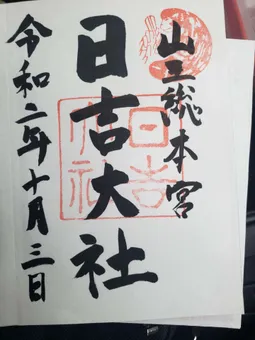 山王総本宮
日吉大社
令和二年十月三日
日吉大社